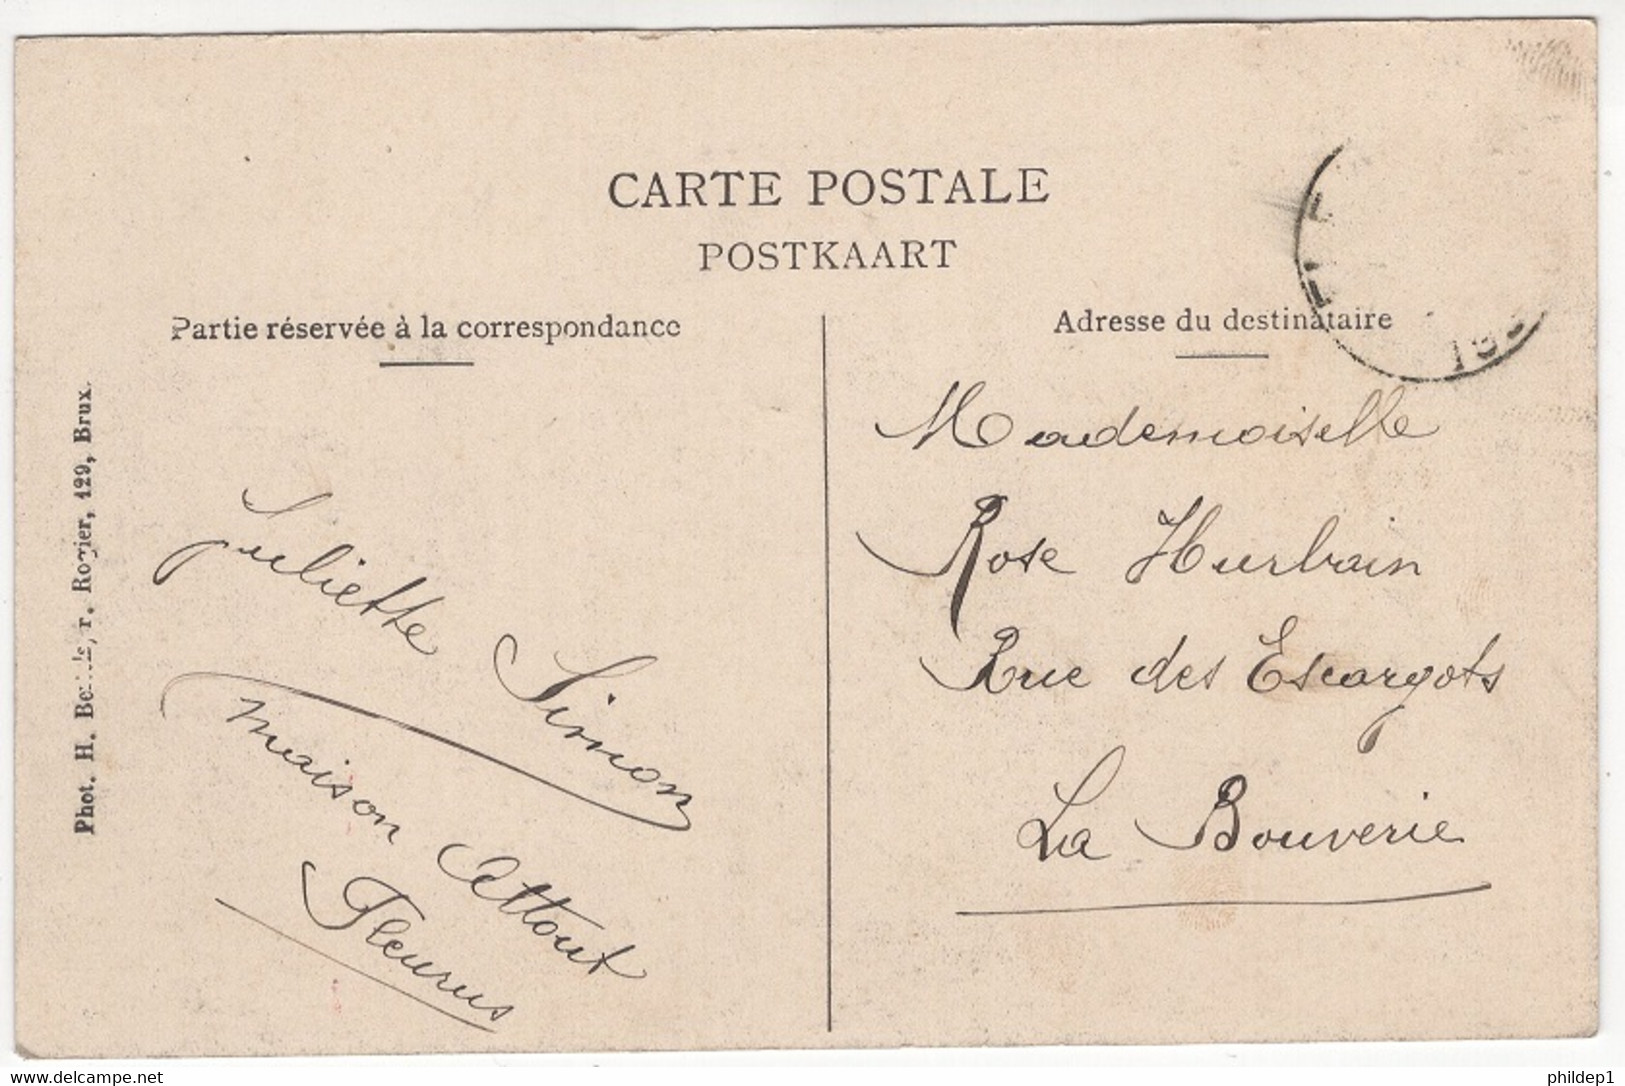 CARTE POSTALE
POSTKAART
Partie réservée à la correspondance
Adresse du destinataire
Phot. H. r. Rogier, 129, Brux.
Juliette Simon
maison Attout
Fleurus
Mademoiselle
Rose Hurbain
Rue des Escargots
La Bouverie
phildep1